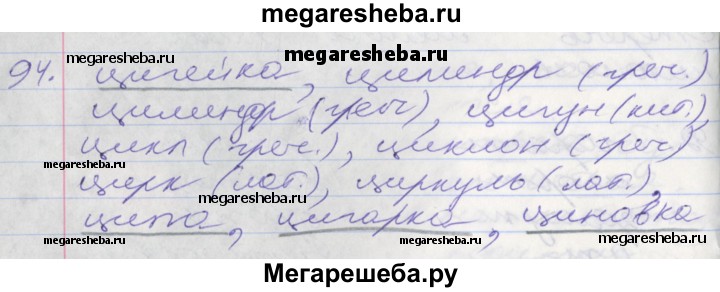 megaresheba.ru
megaresheba.ru
megaresheba.ru
94. цигейка, цилиндр (греч.)
цилиндр (греч), цигун (кит.),
megaresheba.ru
цикл (греч.), циклон (греч)
megaresheba.ru
megaresheba.ru
цирк (лат.), циркуль (лат.),
megaresheba.ru
ципа, цигарка, циновка
megaresheba.ru
megaresheba.ru
Мегарешеба.ру